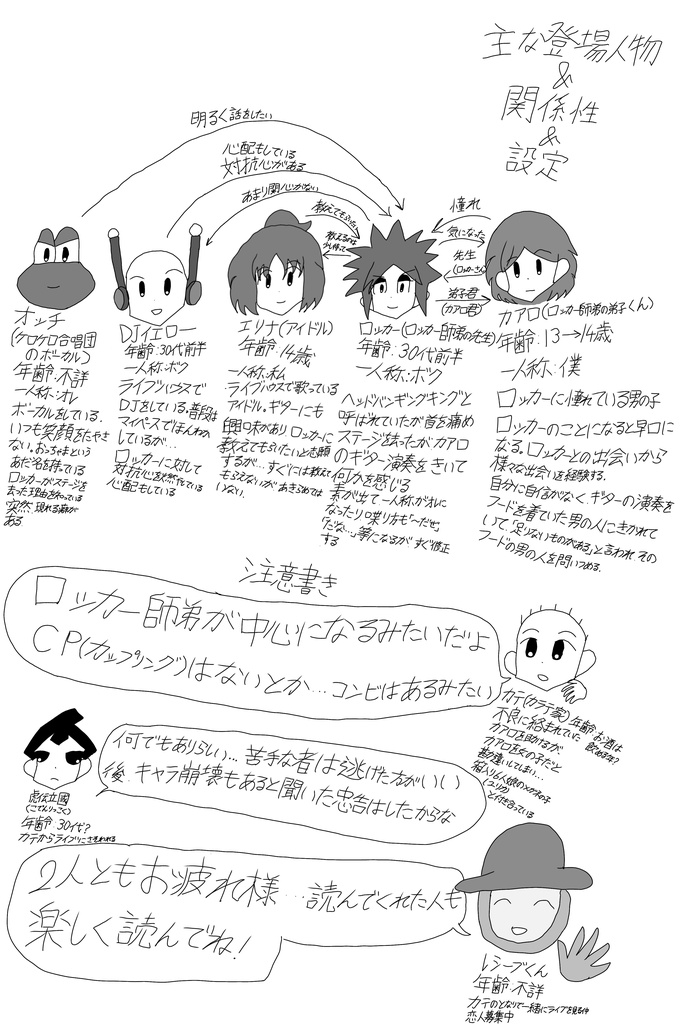 主な登場人物
&
関係性
&
設定
明るく話をしたい
心配もしている
対抗心がある
あまり関心がない
教えてもらいたい
憧れ
気になった
先生
(ロッカーさん)
弟子君
(カアロ君)
オッチ
(ケロケロ合唱団
のボーカル)
年齢:不詳
一人称:オレ
ボーカルをしている。
いつも笑顔をたやさ
ない。おっちゃまという
あだ名を持っている
ロッカーがステージを
去った理由を知っている
突然現れる癖が
ある
DJイエロー
年齢:30代前半
一人称:ボク
ライブハウスで
DJをしている。普段は
マイペースでほんわか
しているが…
ロッカーに対して
対抗心を燃やしている
心配もしている
エリナ(アイドル)
年齢:14歳
一人称:私
ライブハウスで歌っている
アイドル。ギターにも
興味があり、ロッカーに
教えてもらいたいと志願
するが…すぐには教えて
もらえないが、あきらめては
いない。
ロッカー(ロッカー師弟の先生)
年齢:30代前半
一人称:ボク
ヘッドバンギングキングと
呼ばれていたが首を痛め
ステージを去ったが、カアロ
のギター演奏をきいて
何かを感じる
素が出て一人称がオレに
なったり喋り方も「〜だぜ」
「だな…」等になるが、すぐ修正
する
カアロ(ロッカー師弟の弟子くん)
年齢:13→14歳
一人称:僕
ロッカーに憧れている男の子
ロッカーのことになると早口に
なる。ロッカーとの出会いから
様々な出会いを経験する。
自分に自信がなく、ギターの演奏を
フードを着ていた男の人にきかれて
いて「足りないものがある」と言われ、その
フードの男の人を問いつめる。
注意書き
ロッカー師弟が中心になるみたいだよ
CP(カップリング)はないとか…コンビはあるみたい
カテ(カラテ家)年齢:お酒は
飲める年?
不良に絡まれていた
カアロを助けるが
カアロを女の子だと
勘違いしてしまい…
箱入りん娘のメガネの子
(ユリカ)
と付き合っている
何でもありらしい…苦手な者は逃げた方がいい
後、キャラ崩壊もあると聞いた忠告はしたからな
虎伝立國
(こでんりっこく)
年齢:30代?
カテからライブにこさそわれる
2人ともお疲れ様…読んでくれた人も
楽しく読んでね!
レシーブくん
年齢:不詳
カテのとなりで一緒にライブを見る仲
恋人募集中